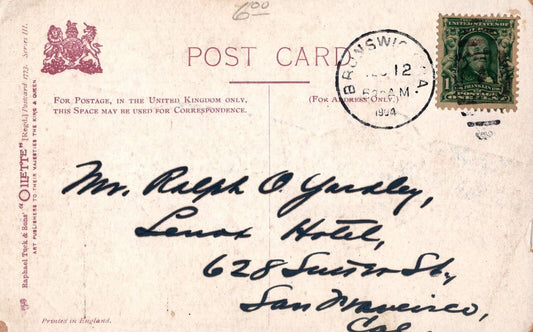 6.00
POST CARD.
FOR POSTAGE, IN THE UNITED KINGDOM ONLY,
THIS SPACE MAY BE USED FOR CORRESPONDENCE.
(FOR ADDRESS ONLY.)
BRUNSWIC GA.
12
AM
1904
UNITED STATES OF
FRANKLIN
POSTAGE
Raphael Tuck & Sons' "OILETTE" [Regd.] Postcard 1773. Series III.
ART PUBLISHERS TO THEIR MAJESTIES THE KING & QUEEN
Mr. Ralph O. Yardley,
Lenox Hotel,
628 Sutter St.,
San Francisco,
Cal
Printed in England.